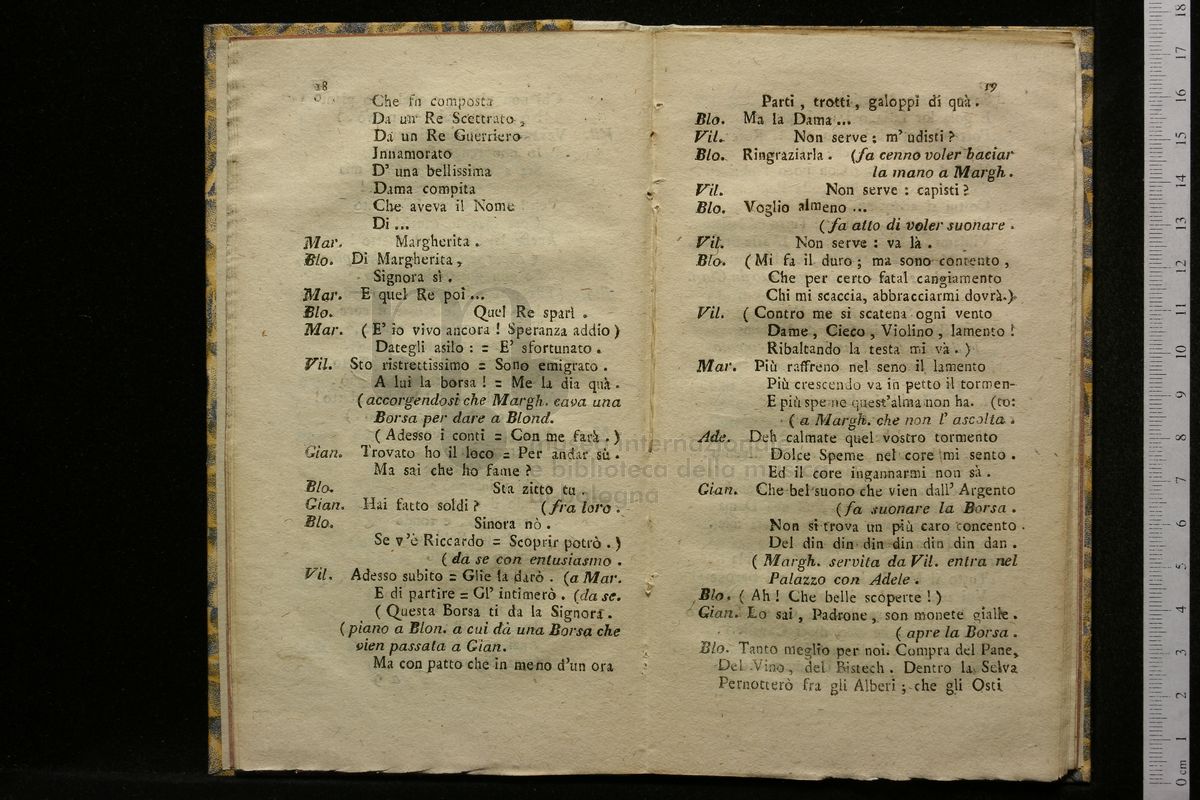 18
Che fu composta
Da un Re Scettrato,
Da un Re Guerriero
Innamorato
D' una bellissima
Dama compita
Che aveva il Nome
Di ...
Mar. Margherita.
Blo. Di Margherita,
Signora sì.
Mar. E quel Re poi ...
Blo. Quel Re sparì.
Mar. (E' io vivo ancora! Speranza addio)
Dategli asilo: = E' sfortunato.
Vil. Sto ristrettissimo = Sono emigrato.
A lui la borsa! = Me la dia quà.
(accorgendosi che Margh. cava una
Borsa per dare a Blond.
(Adesso i conti = Con me farà.)
Gian. Trovato ho il loco = Per andar sù.
Ma sai che ho fame?
Blo. Sta zitto tu.
Gian. Hai fatto soldi? (fra loro.
Blo. Sinora nò.
Se v'è Riccardo = Scoprir potrò.)
(da se con entusiasmo.
Vil. Adesso subito = Glie la darò. (a Mar.
E di partire = Gl' intimerò. (da se.
(Questa Borsa ti da la Signora.
(piano a Blon. a cui dà una Borsa che
vien passata a Gian.
Ma con patto che in meno d'un ora
19
Parti, trotti, galoppi di quà.
Blo. Ma la Dama ...
Vil. Non serve; m' udisti?
Blo. Ringraziarla. (fa cenno voler baciar
la mano a Margh.
Vil. Non serve: capisti?
Blo. Voglio almeno ...
(fa atto di voler suonare.
Vil. Non serve: va là.
Blo. (Mi fa il duro; ma sono contento,
Che per certo fatal cangiamento
Chi mi scaccia, abbracciarmi dovrà.)
Vil. (Contro me si scatena ogni vento
Dame, Cieco, Violino, lamento!
Ribaltando la testa mi và.)
Mar. Più raffreno nel seno il lamento
Più crescendo va in petto il tormen-
E più speme quest'alma non ha. (to:
(a Margh. che non l' ascolta.
Ade. Deh calmate quel vostro tormento
Dolce Speme nel core mi sento.
Ed il core ingannarmi non sà.
Gian. Che bel suono che vien dall' Argento
(fa suonare la Borsa.
Non si trova un più caro concento.
Del din din din din din din dan.
(Margh. servita da Vil. entra nel
Palazzo con Adele.
Blo. (Ah! Che belle scoperte!)
Gian. Lo sai, Padrone, son monete gialle.
(apre la Borsa.
Blo. Tanto meglio per noi. Compra del Pane,
Del Vino, del Bistech. Dentro la Selva
Pernotterò fra gli Alberi; che gli Osti